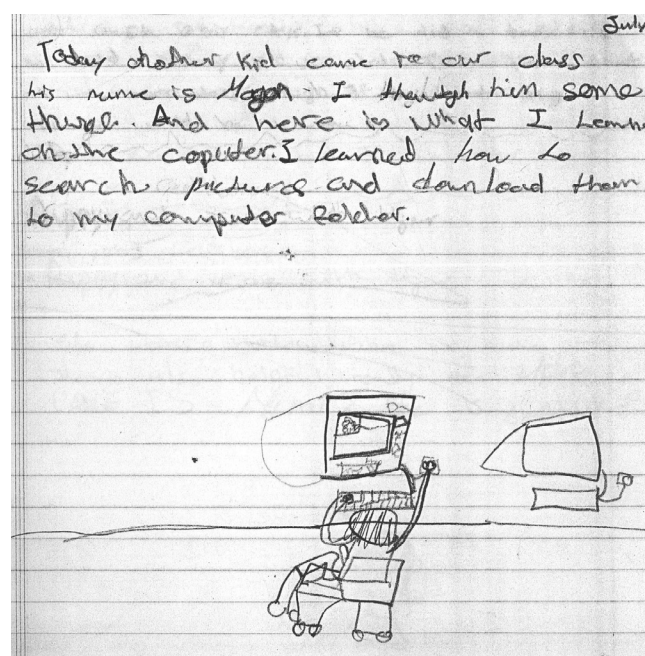 July
Today another kid came to our class
his name is Hogan. I thaught him some
things. And here is what I Learn
on the coputer. I learned how to
search pictures and download them
to my computer folder.